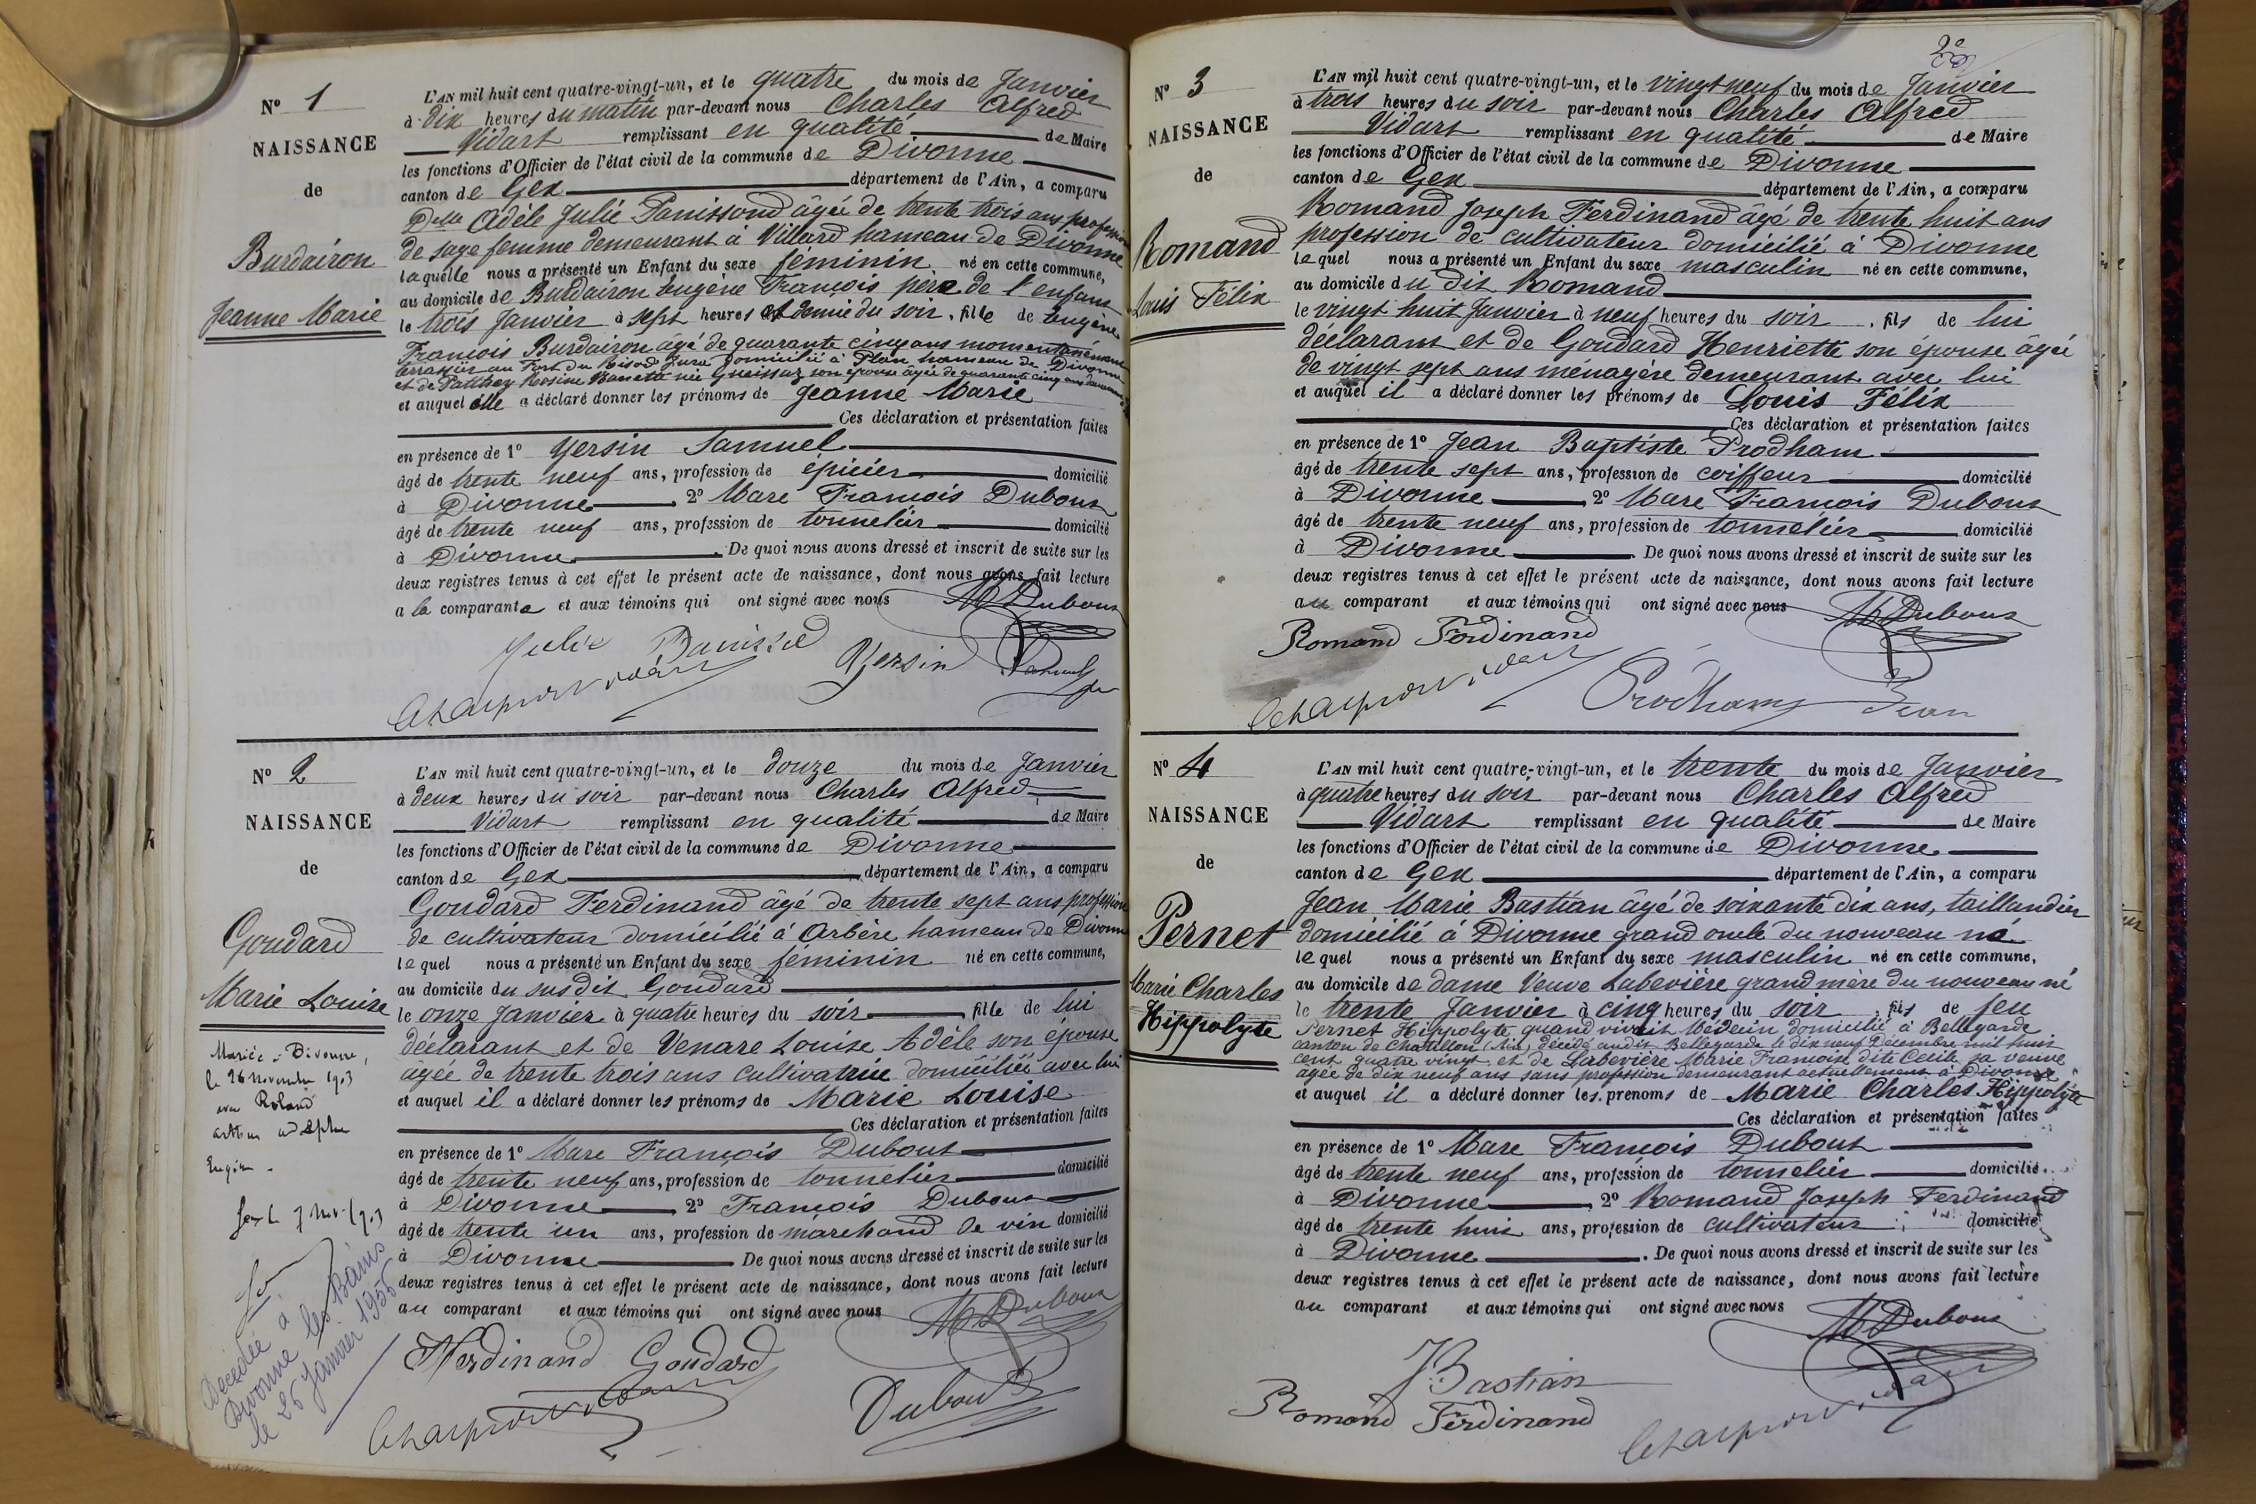 N° 1
NAISSANCE
de
Burdairon
Jeanne Marie
L'AN mil huit cent quatre-vingt-un, et le quatre du mois de Janvier
à dix heures du matin par-devant nous Charles Alfred
Vidart remplissant en qualité de Maire
les fonctions d'Officier de l'état civil de la commune de Divonne
canton de Gex département de l'Ain, a comparu
Delle Adèle Julie Panissod âgée de trente trois ans profession
de sage femme demeurant à Villard hameau de Divonne
laquelle nous a présenté un Enfant du sexe féminin né en cette commune,
au domicile de Burdairon Eugène François père de l'enfant
le trois Janvier à sept heures et demie du soir, fille de Eugène
François Burdairon âgé de quarante cinq ans momentanément
terrassier au Fort du Risoud Jura domicilié à Plan hameau de Divonne
et de Patthey Rosine née son épouse âgée de quarante cinq ans
et auquel elle a déclaré donner les prénoms de Jeanne Marie
Ces déclaration et présentation faites
en présence de 1° Yersin Samuel
âgé de trente neuf ans, profession de épicier domicilié
à Divonne 2° Marc François Dubout
âgé de trente neuf ans, profession de tonnelier domicilié
à Divonne. De quoi nous avons dressé et inscrit de suite sur les
deux registres tenus à cet effet le présent acte de naissance, dont nous avons fait lecture
a la comparante et aux témoins qui ont signé avec nous
M Dubout
Julie Panissod
Yersin Samuel
N° 2
NAISSANCE
de
Goudard
Marie Louise
Mariée à Divonne,
le 26 Novembre 1903
avec Roland
Arthur Adolphe
Eugène.
Décédée à
Divonne les Bains
le 26 Janvier 1956
L'AN mil huit cent quatre-vingt-un, et le douze du mois de Janvier
à deux heures du soir par-devant nous Charles Alfred
Vidart remplissant en qualité de Maire
les fonctions d'Officier de l'état civil de la commune de Divonne
canton de Gex département de l'Ain, a comparu
Goudard Ferdinand âgé de trente sept ans profession
de cultivateur domicilié à Arbère hameau de Divonne
lequel nous a présenté un Enfant du sexe féminin né en cette commune,
au domicile du susdit Goudard
le onze Janvier à quatre heures du soir, fille de lui
déclarant et de Venare Louise Adèle son épouse
âgée de trente trois ans cultivatrice domiciliée avec lui
et auquel il a déclaré donner les prénoms de Marie Louise
Ces déclaration et présentation faites
en présence de 1° Marc François Dubout
âgé de trente neuf ans, profession de tonnelier domicilié
à Divonne 2° François Dubout
âgé de trente un ans, profession de marchand de vin domicilié
à Divonne De quoi nous avons dressé et inscrit de suite sur les
deux registres tenus à cet effet le présent acte de naissance, dont nous avons fait lecture
au comparant et aux témoins qui ont signé avec nous
M Dubout
Ferdinand Goudard
Dubout
N° 3
NAISSANCE
de
Romand
Louis Félix
L'AN mil huit cent quatre-vingt-un, et le vingt neuf du mois de Janvier
à trois heures du soir par-devant nous Charles Alfred
Vidart remplissant en qualité de Maire
les fonctions d'Officier de l'état civil de la commune de Divonne
canton de Gex département de l'Ain, a comparu
Romand Joseph Ferdinand âgé de trente huit ans
profession de cultivateur domicilié à Divonne
lequel nous a présenté un Enfant du sexe masculin né en cette commune,
au domicile du dit Romand
le vingt huit Janvier à neuf heures du soir, fils de lui
déclarant et de Goudard Henriette son épouse âgée
de vingt sept ans ménagère demeurant avec lui
et auquel il a déclaré donner les prénoms de Louis Félix
Ces déclaration et présentation faites
en présence de 1° Jean Baptiste Prodham
âgé de trente sept ans, profession de coiffeur domicilié
à Divonne 2° Marc François Dubout
âgé de trente neuf ans, profession de tonnelier domicilié
à Divonne. De quoi nous avons dressé et inscrit de suite sur les
deux registres tenus à cet effet le présent acte de naissance, dont nous avons fait lecture
au comparant et aux témoins qui ont signé avec nous
M Dubout
Romand Ferdinand
Prodham Jean
N° 4
NAISSANCE
de
Pernet
Marie Charles
Hippolyte
L'AN mil huit cent quatre-vingt-un, et le trente du mois de Janvier
à quatre heures du soir par-devant nous Charles Alfred
Vidart remplissant en qualité de Maire
les fonctions d'Officier de l'état civil de la commune de Divonne
canton de Gex département de l'Ain, a comparu
Jean Marie Bastian âgé de soixante dix ans, taillandier
domicilié à Divonne grand oncle du nouveau né
lequel nous a présenté un Enfant du sexe masculin né en cette commune,
au domicile de dame Veuve Labevière grand mère du nouveau né
le trente Janvier à cinq heures du soir, fils de feu
Pernet Hippolyte quand vivait Médecin domicilié à Bellegarde
canton de Chatillon (Ain) décédé audit Bellegarde le dix neuf Décembre mil huit
cent quatre vingt et de Labevière Marie Francoise dite Cécile sa veuve
âgée de dix neuf ans sans profession demeurant actuellement à Divonne
et auquel il a déclaré donner les prénoms de Marie Charles Hippolyte
Ces déclaration et présentation faites
en présence de 1° Marc François Dubout
âgé de trente neuf ans, profession de tonnelier domicilié
à Divonne, 2° Romand Joseph Ferdinand
âgé de trente huit ans, profession de cultivateur domicilié
à Divonne. De quoi nous avons dressé et inscrit de suite sur les
deux registres tenus à cet effet le présent acte de naissance, dont nous avons fait lecture
au comparant et aux témoins qui ont signé avec nous
M Dubout
J Bastian
Romand Ferdinand